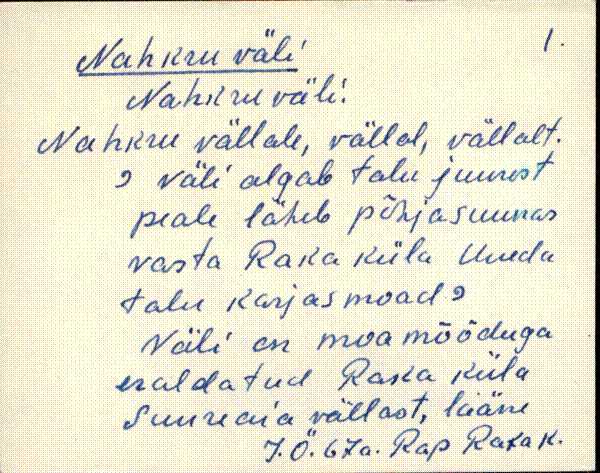 Nahkru väli 1.
Nahkru väli.
Nahkru vällale, vällal, vällalt.
väli algab talu juurest
peale läheb põhjasuunas
vasta Raka küla Uueda
talu karjasmoad
Väli on moamõõduga
eraldatud Raka küla
Suureaia vällast, lääne
J.Ö. 67a. Rap Raka k.